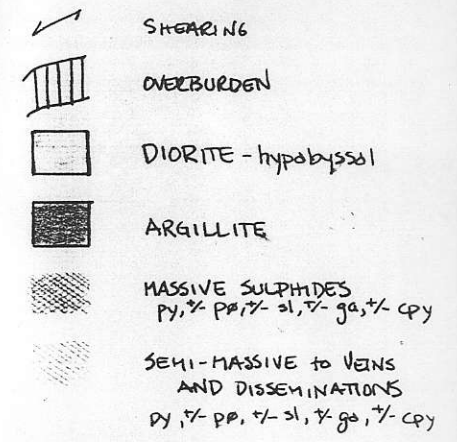 SHEARING
OVERBURDEN
DIORITE - hypabyssal
ARGILLITE
MASSIVE SULPHIDES
py, +/- pø, +/- sl, +/- ga, +/- cpy
SEMI-MASSIVE to VEINS
AND DISSEMINATIONS
py, +/- pø, +/- sl, +/- ga, +/- cpy